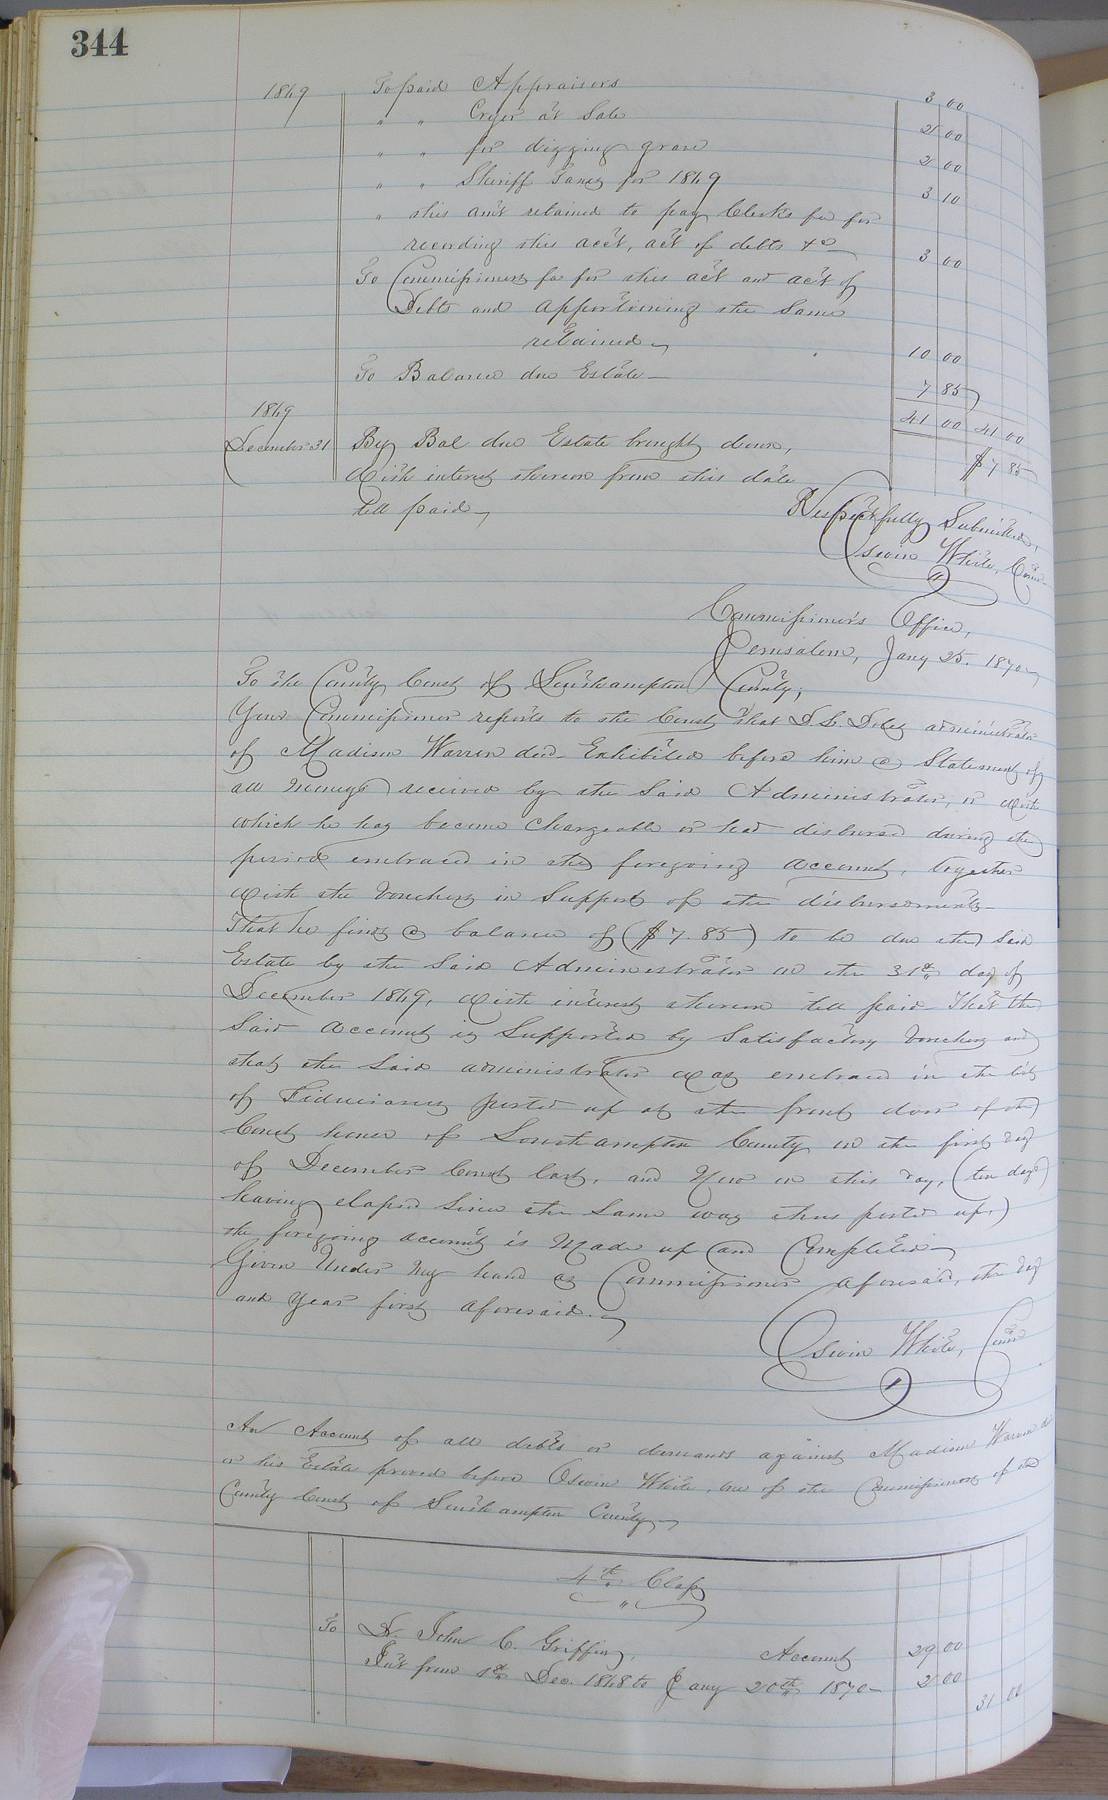 344
1869 To paid Appraisers 3 00
" " Cryer at Sale 2 00
" " for digging grave 2 00
" " Sheriff Taxes for 1869 3 10
" this am't retained to pay Clerks fee for
recording this acc't, ac't of debts &c 3 00
To Commissioners fee for this ac't and ac't of
Debts and apportioning the Same
retained 10 00
To Balance due Estate 7 85
41 00 41 00
1869
December 31 By Bal due Estate brought down, $7 85
With interest thereon from this date
till paid
Respectfully Submitted,
Oswin White, Com
Commissioner's Office,
Jerusalem, Jany 25. 1870
To the County Court of Southampton County;
Your Commissioner reports to the Court that administrator
of Madison Warren decd Exhibited before him a Statement of
all moneys received by the Said Administrator, or with
which he has become Chargeable or had disbursed during the
period embraced in the foregoing account, together
with the Vouchers in Support of the disbursements
That he finds a balance of ($7.85) to be due the Said
Estate by the Said Administrator on the 31st day of
December 1869, with interest thereon till paid That the
Said account is Supported by Satisfactory Vouchers and
that the Said administrator was embraced in the list
of Fiduciaries posted up at the front door of the
Court house of Southampton County on the first day
of December Court last, and Now on this day, (ten days
having elapsed Since the Same was thus posted up,)
the foregoing account is Made up and Completed
Given Under my hand as Commissioner aforesaid, the day
and Year first aforesaid.
Oswin White, Com
An Account of all debts or demands against Madison Warren dec
or his Estate proved before Oswin White, one of the Commissioners of the
County Court of Southampton County
4th Class
To Dr. John C. Griffin, Account 29 00
Int from 1st Dec. 1868 to Jany 20th 1870 2 00 31 00